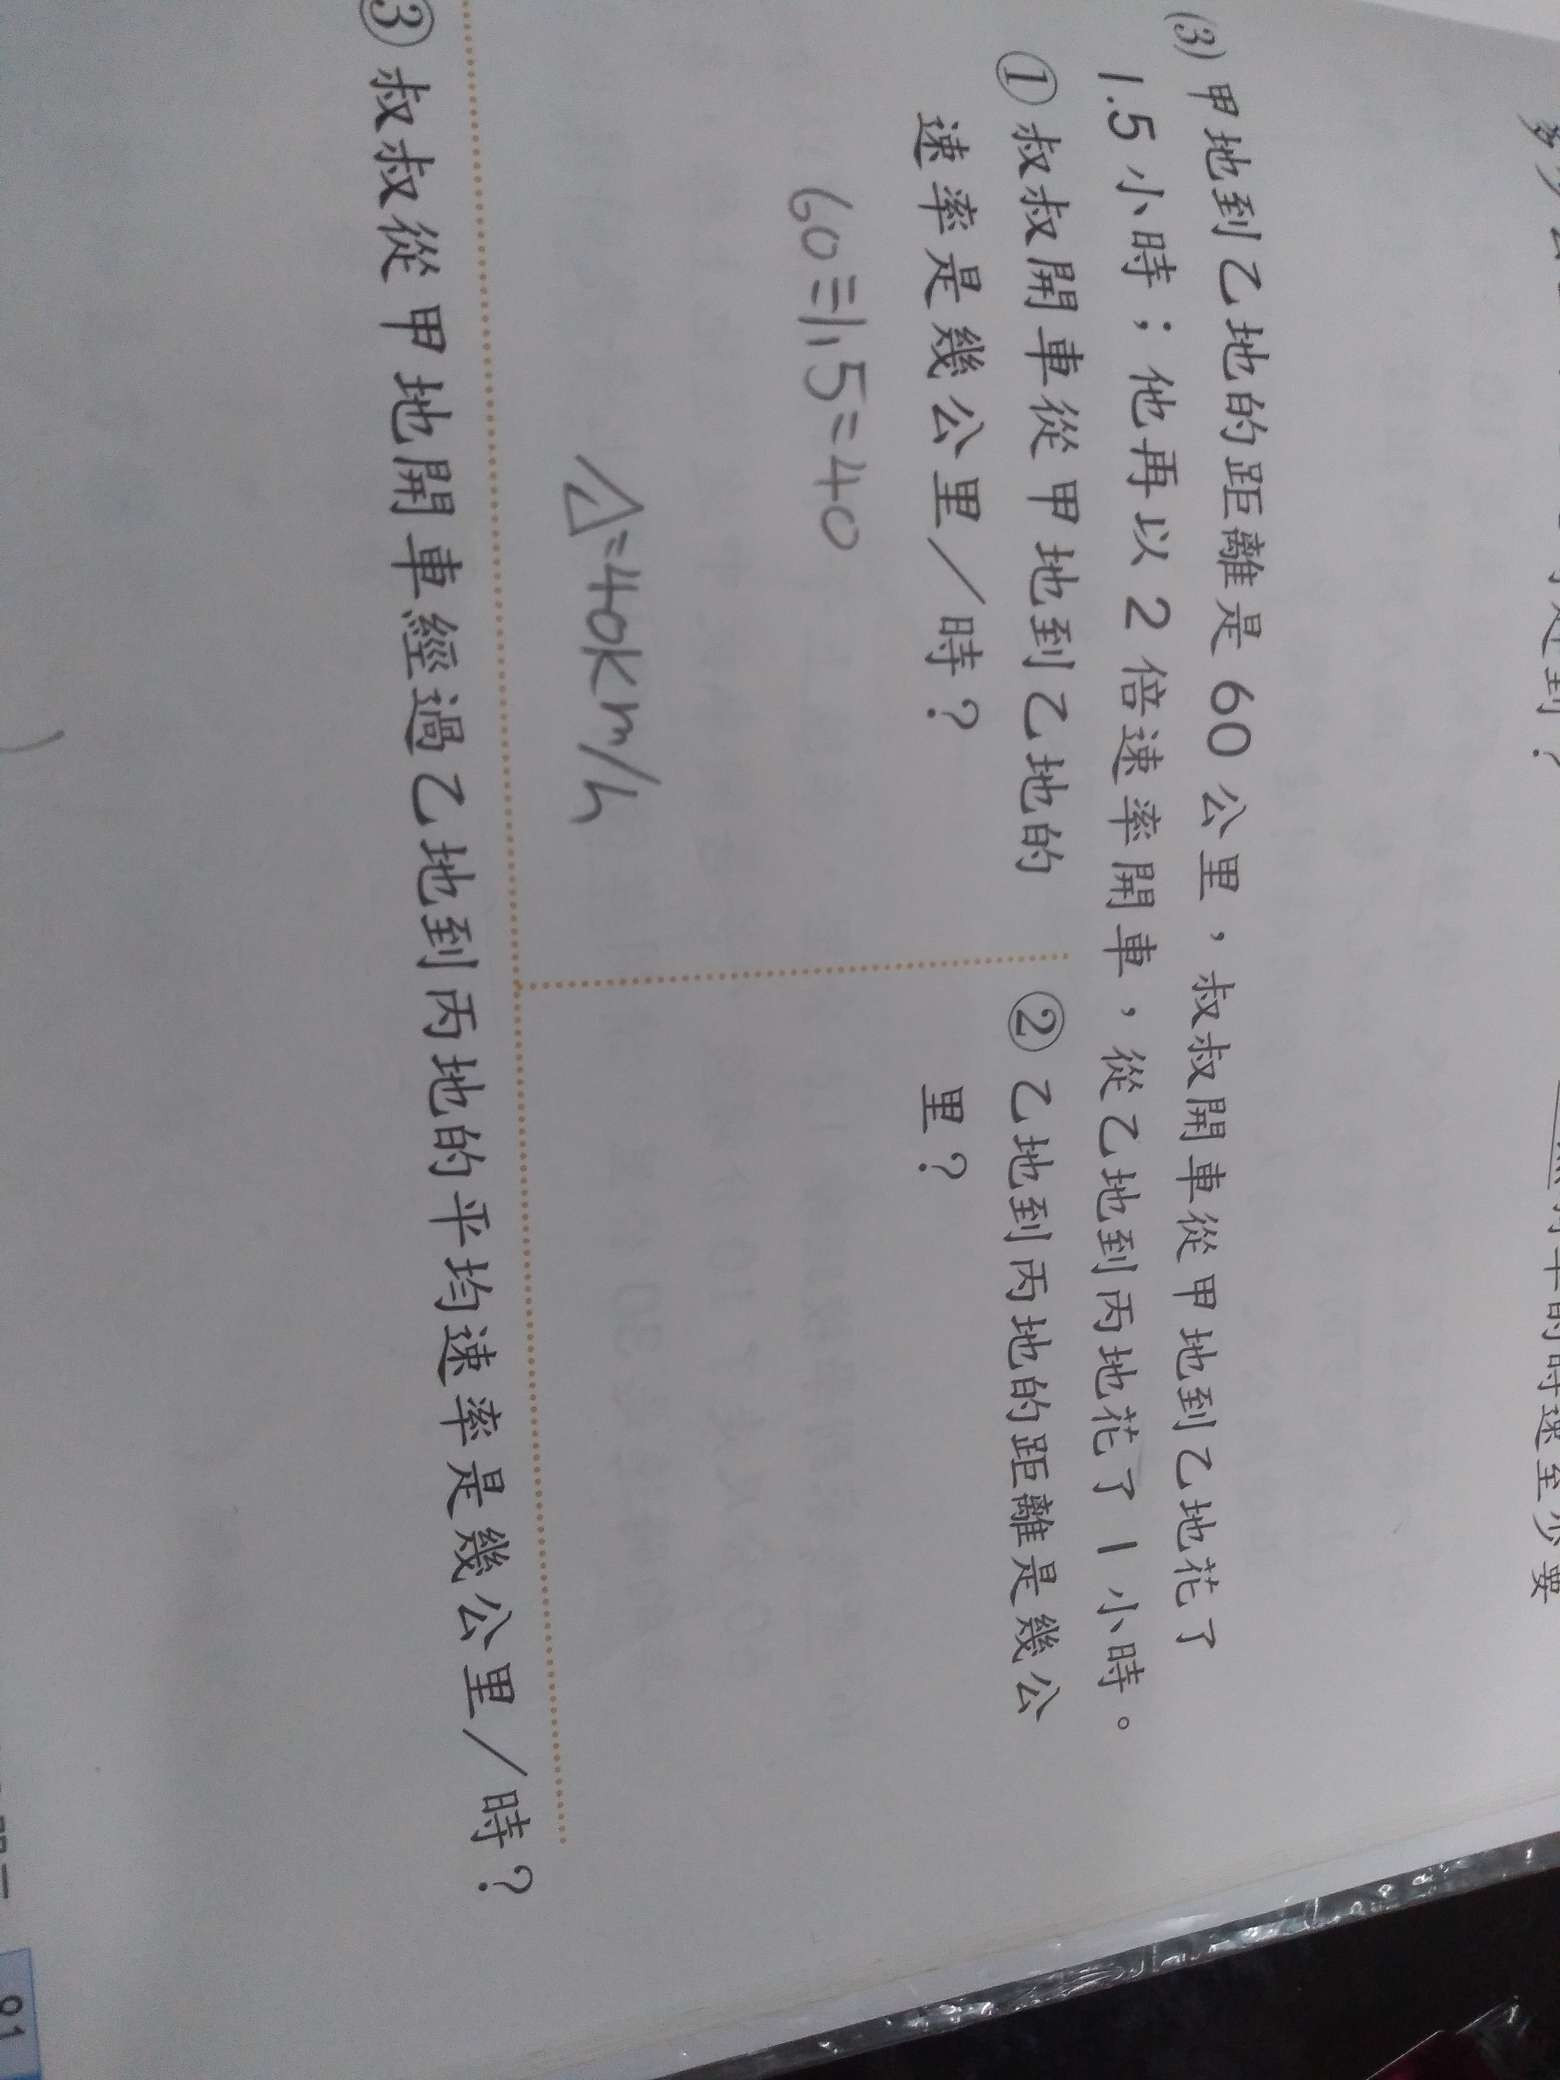 (3) 甲地到乙地的距離是 60 公里，叔叔開車從甲地到乙地花了
1.5 小時；他再以 2 倍速率開車，從乙地到丙地花了 1 小時。
① 叔叔開車從甲地到乙地的
速率是幾公里／時？
60÷1.5=40
A=40km/h
② 乙地到丙地的距離是幾公
里？
③ 叔叔從甲地開車經過乙地到丙地的平均速率是幾公里／時？
91